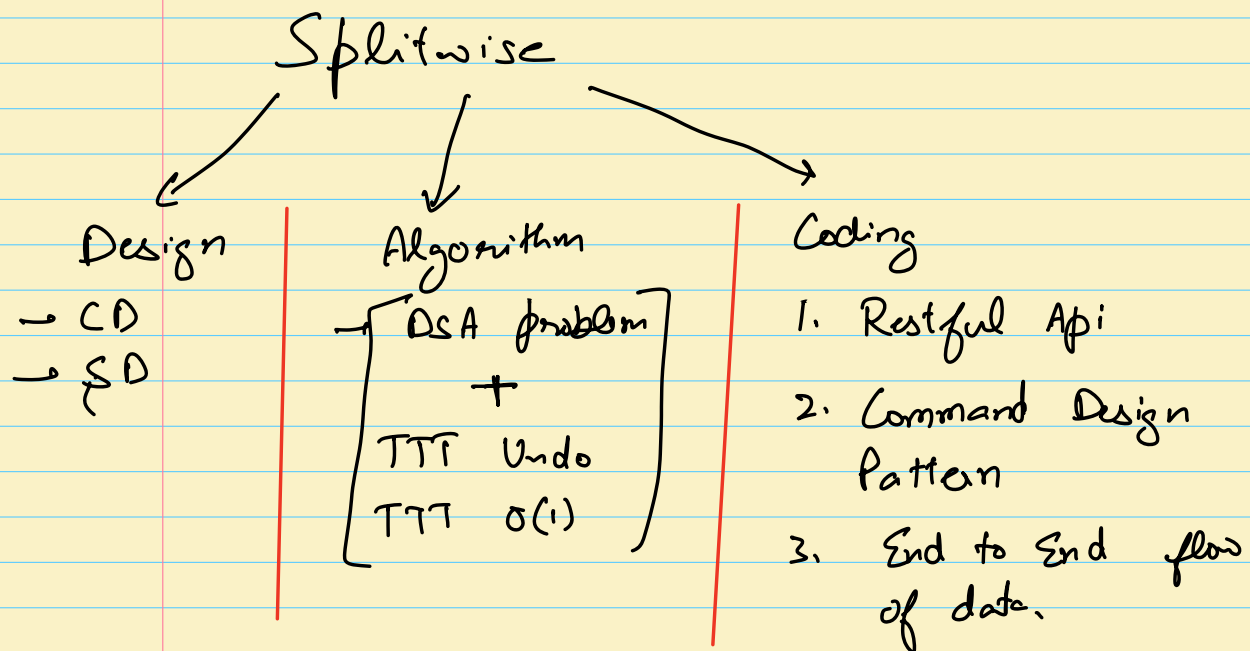 Splitwise
Design
→ CD
→ SD
Algorithm
→ DSA problem
+
TTT Undo
TTT O(1)
Coding
1. Restful Api
2. Command Design
Pattern
3. End to End flow
of data.